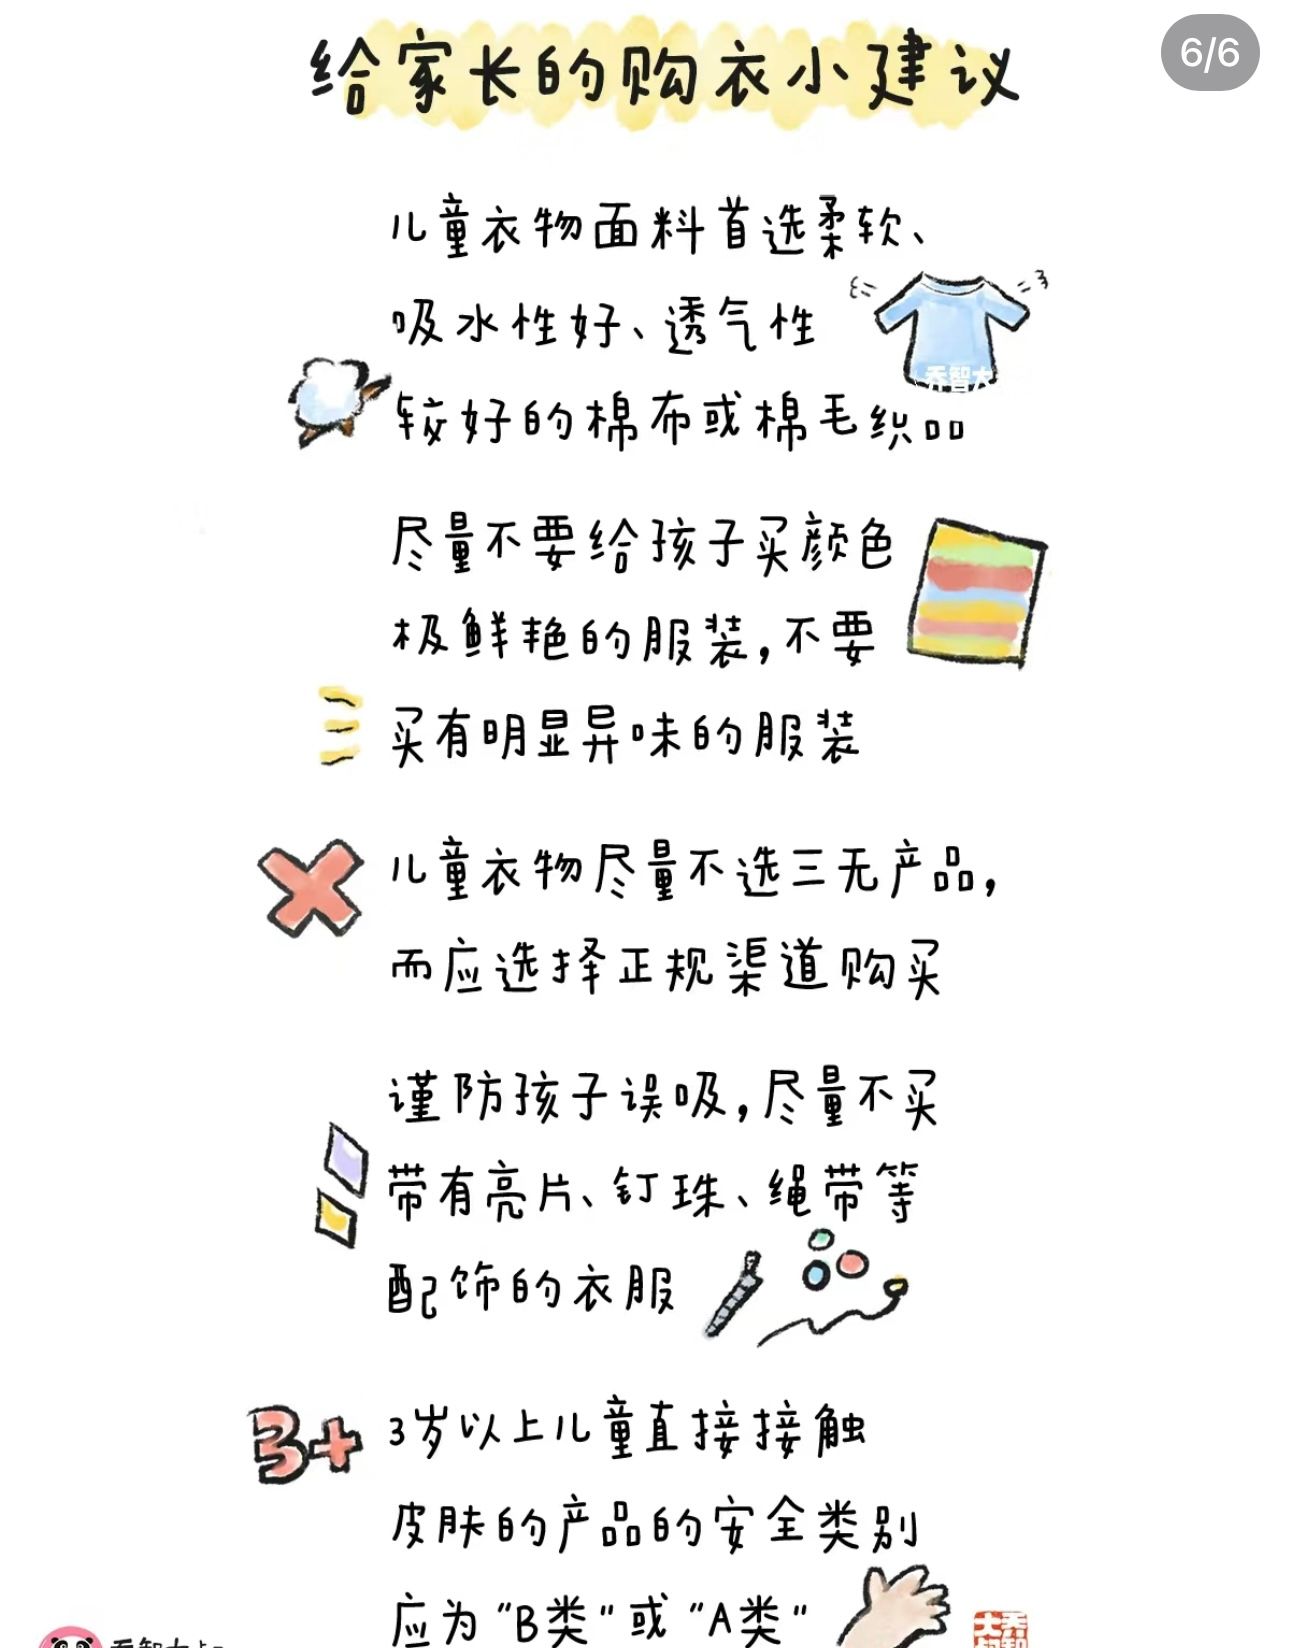 给家长的购衣小建议
6/6
儿童衣物面料首选柔软、
吸水性好、透气性
较好的棉布或棉毛织品
尽量不要给孩子买颜色
极鲜艳的服装,不要
买有明显异味的服装
儿童衣物尽量不选三无产品,
而应选择正规渠道购买
谨防孩子误吸,尽量不买
带有亮片、钉珠、绳带等
配饰的衣服
3+
3岁以上儿童直接接触
皮肤的产品的安全类别
应为“B类”或“A类”